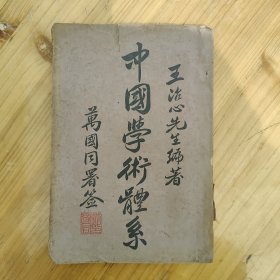 王治心先生編著
中國學術體系
萬國同署签